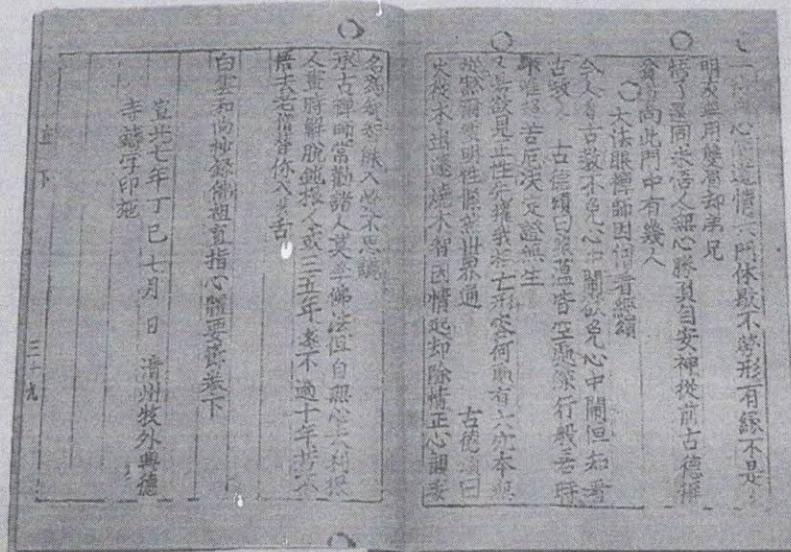 一心遠情六門休歇不勞形有緣不是
明友無用雙眉却弟兄
悟了還同未悟人無心勝負自安神從前古德稱
貧道向此門中有幾人
大法眼禪師因僧看經頌
今人看古教不免心中鬧欲免心中鬧但知看
古教 古德頌曰蘊皆空深行般若時
苦厄決定證無生
欲見正性先壞我相亡形容何所有六亦本無
明性歷然世界通 古德頌曰
火從木出還燒木智因情起却除情正心調妄
名為入不思議
承古禪師常勸諸人莫學佛法但自無心去利根
人晝時解脫鈍根人或三五年遠不過十年若不
悟去老僧替你入拔舌
白雲和尚抄錄佛祖直指心體要節卷下
宣光七年丁巳七月 日 淸州牧外興德
寺鑄字印施
直下 三十九